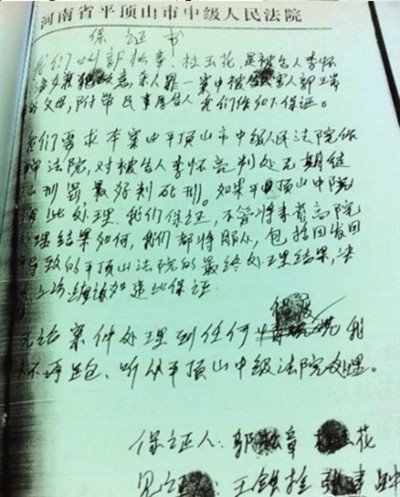 河南省平顶山市中级人民法院
保证书
我们叫郭松章、杜玉花,是被告人李怀
故意杀人罪一案中被害人郭
的父母,附带民事原告人,我们作如下保证。
我们要求本案由平顶山市中级人民法院作
审法院,对被告人李怀亮判处无期徒
刑罚,最好判死刑。如果平顶山中院
此处理,我们保证,不管将来高院
处理结果如何,我们都将服从,包括因发回
导致的平顶山法院的最终处理结果,决
上访,绝不违此保证
无论案件处理到任何 我
不再追究,听从平顶山中级法院处理。
保证人:郭松章 杜玉花
见证人:王铁栓 张